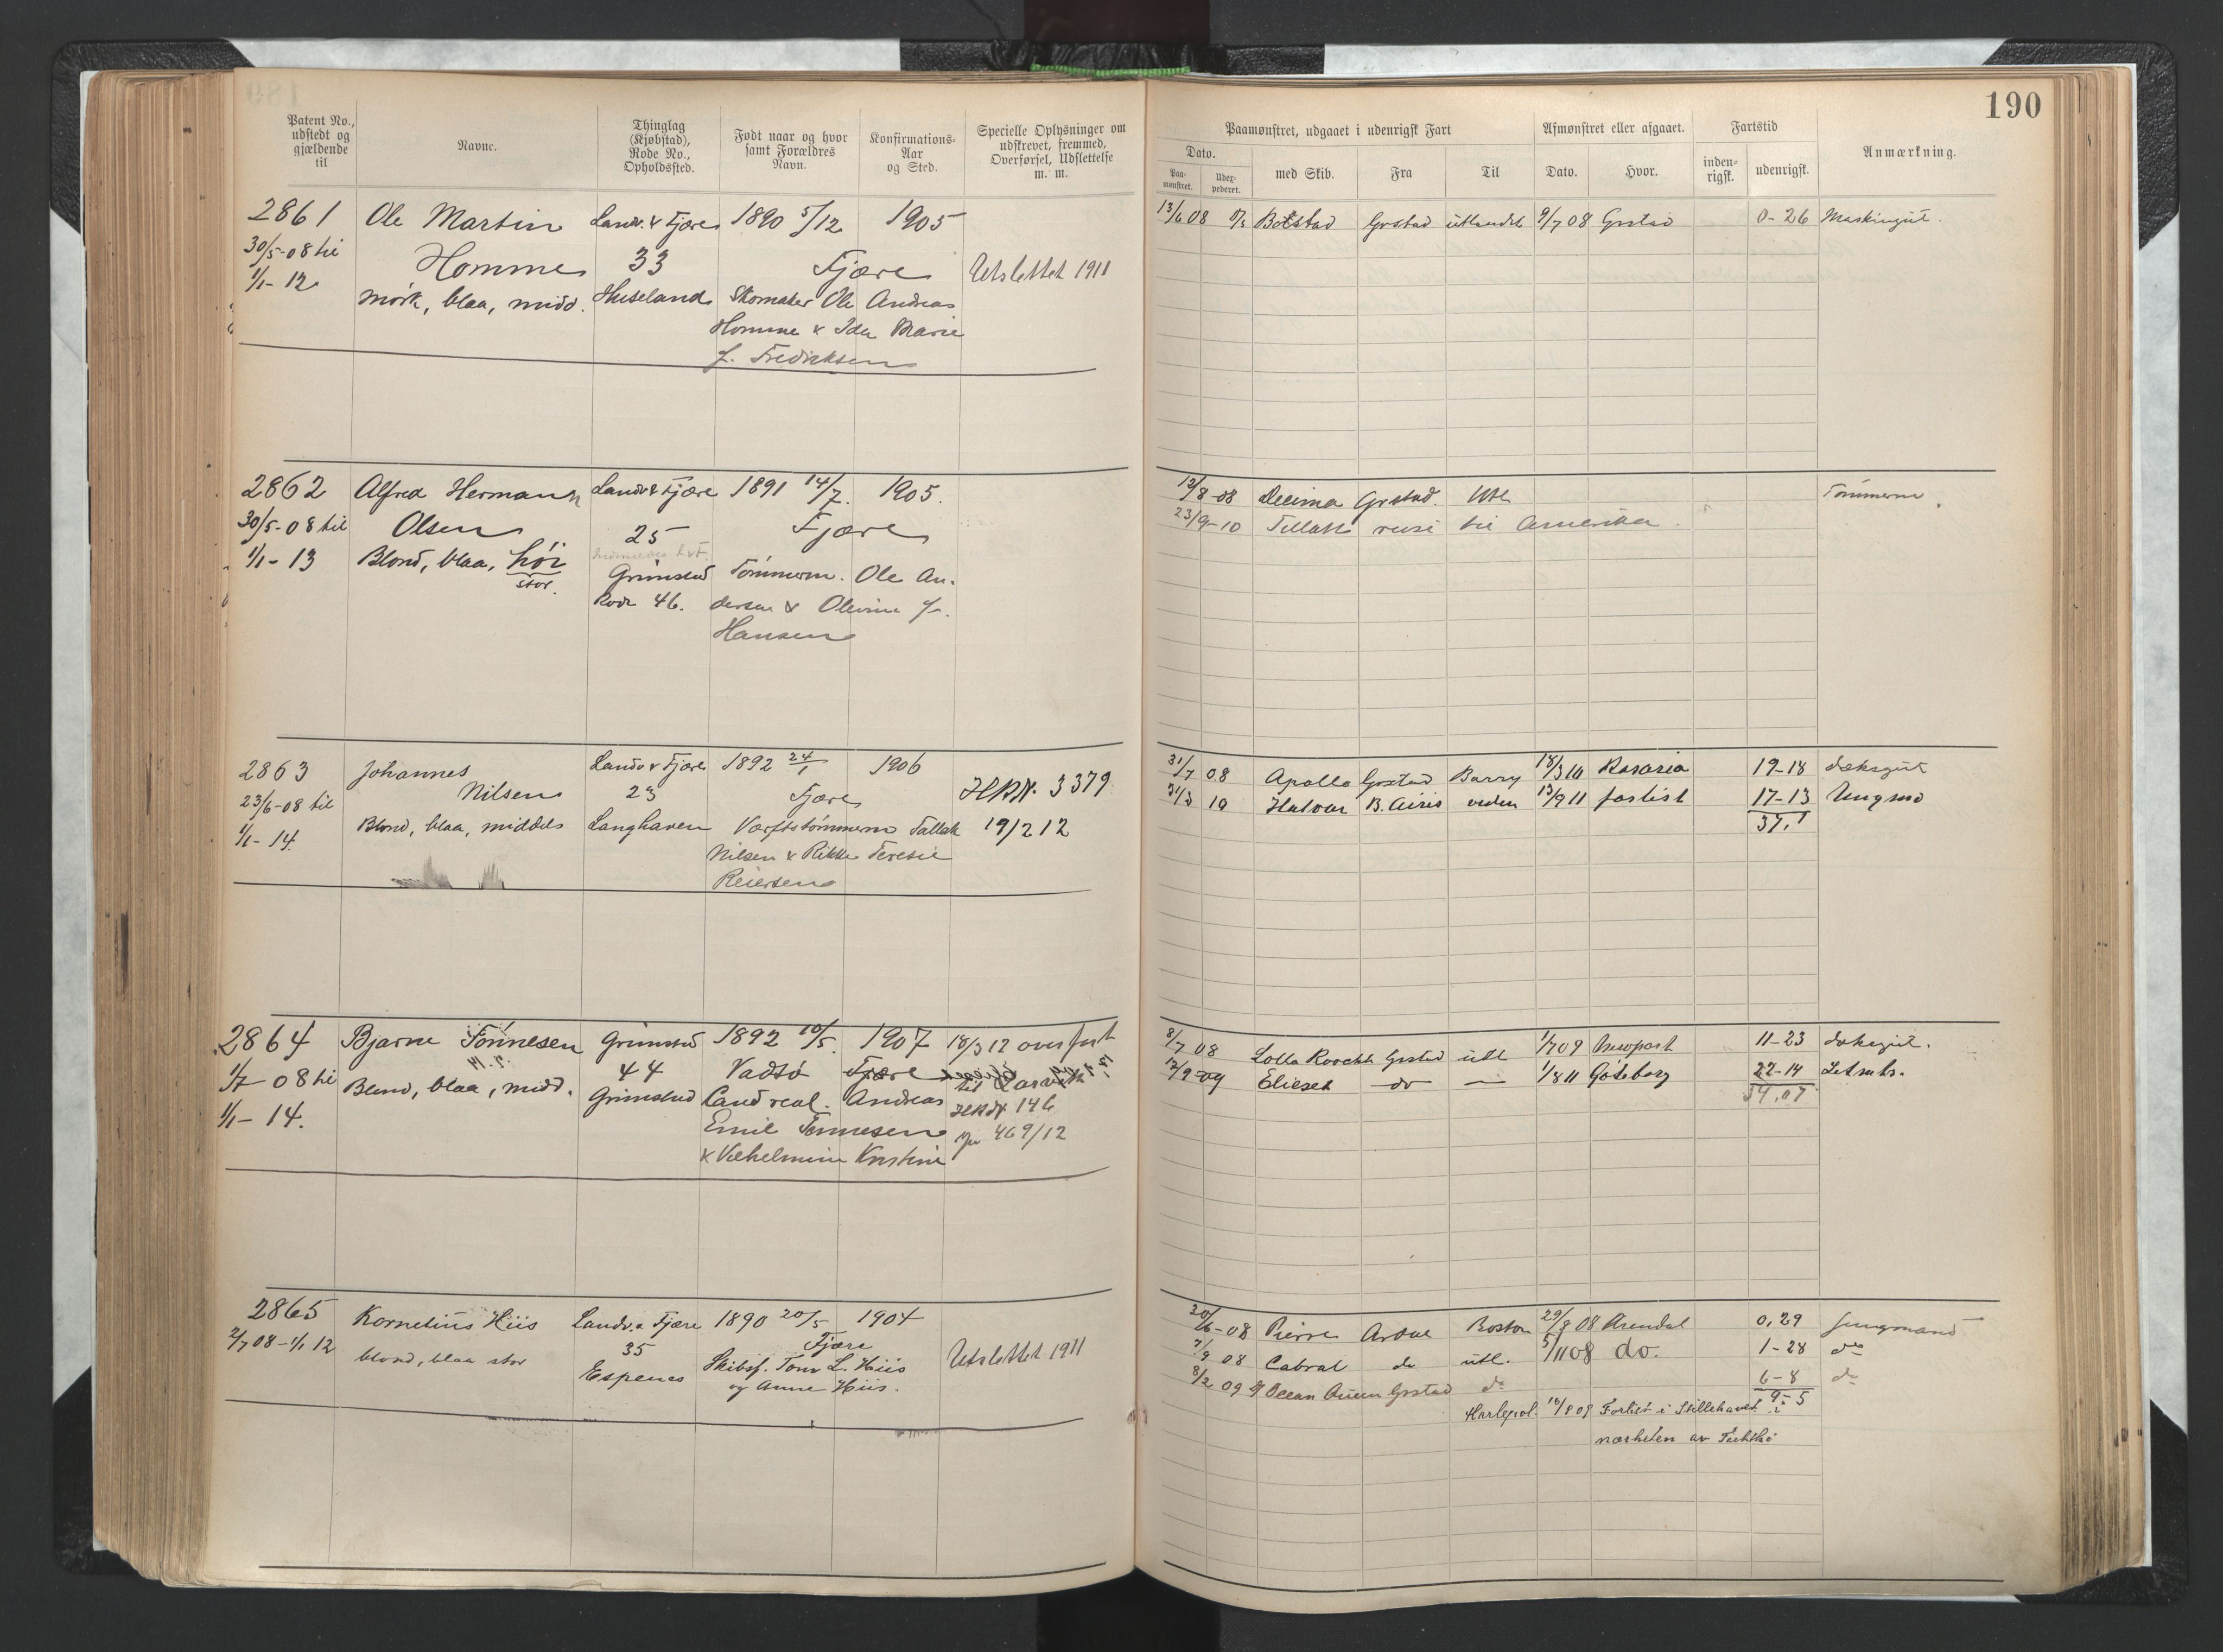 190
Patent No., udstedt og gjældende til
Navne.
Thinglag (Kjøbstad), Rode No., Opholdssted.
Født naar og hvor samt Forældres Navn.
Konfirmations-Aar og Sted.
Specielle Oplysninger om udskrevet, fremmed, Overførsel, Udslettelse m. m.
Paamønstret, udgaaet i udenrigsk Fart
Dato.
Paa-mønstret.
Udex-pederet.
med Skib.
Fra
Til
Afmønstret eller afgaaet.
Dato.
Hvor.
Fartstid
inden-rigsk.
udenrigsk.
Anmærkning.
2861 Ole Martin Landv. & Fjære 1890 5/12 1905
30/5-08 til Homme 33 Fjære Utslettet 1911
1/1-12 mørk, blaa, midd. Huseland Skomaker Ole Andreas
Homme & Ida Marie
f. Fredriksen
13/6 08 Botstad Grstad utlandet 9/7 08 Grstad 0-26 Maskingut.
2862 Alfred Hermann Landv & Fjære 1891 14/7. 1905.
30/5-08 til Olsen 25 Fjære
1/1-13 Blond, blaa, høi
stor.
Grimstad Tømmerm. Ole An-
Rode 46. dersen & Olevine f.
Hansen
13/8-08 Decima Grstad. Utl Tømmerm
23/9-10 Tillatt reise til Amerika.
2863 Johannes Landv & Fjære 1892 24/1 1906
23/6-08 til Nilsen 23 Fjære HRN. 3379
1/1-14. Blond, blaa, middels Langhaven Værftstømmerm Tallak 19/2 12
Nilsen & Rikke Teresie
Reiersen
31/7 08 Apollo Grstad Barry 18/3 10 Rosario 19-18 dæksgut
31/3 10 Halvar B. Aires 13/9 11 forlist 17-13 Ungmd
37.1
2864 Bjarne Tönnesen Grimstad 1892 10/5. 1907 18/3 12 overført
1/7-08 til Blond, blaa, midd. 44 Vadsø Fjære til Larvik
1/1-14. Grimstad Cand real. Andreas HRN 146
Emil Tønnesen Jn 469/12
& Vilhelmine Kristine
8/7 08 Grstad utl 1/7 09 Newport 11-23 dæksgut.
12/9-09 Elieset do — 1/8 11 Göteborg 22-14 Letmts.
34.07
2865 Kornelius Hiis Landv. & Fjære 1890 20/5 1904
2/7 08-1/1 12 blond, blaa stor 35 Fjære Utslettet 1911
Espenes Skibsf. Tom L. Hiis
og Anne Hiis.
20/6-08 Pierre Ardal Boston 29/8 08 Arendal 0,29 Jungmand
7/9 08 Cabral do utl. 5/11 08 do. 1-28 do
8/2 09 Ocean Queen Grstad do 6-8 do
9-5
Hartlepol. 18/8 09 Forlist i Stillehavet i
nærheten av